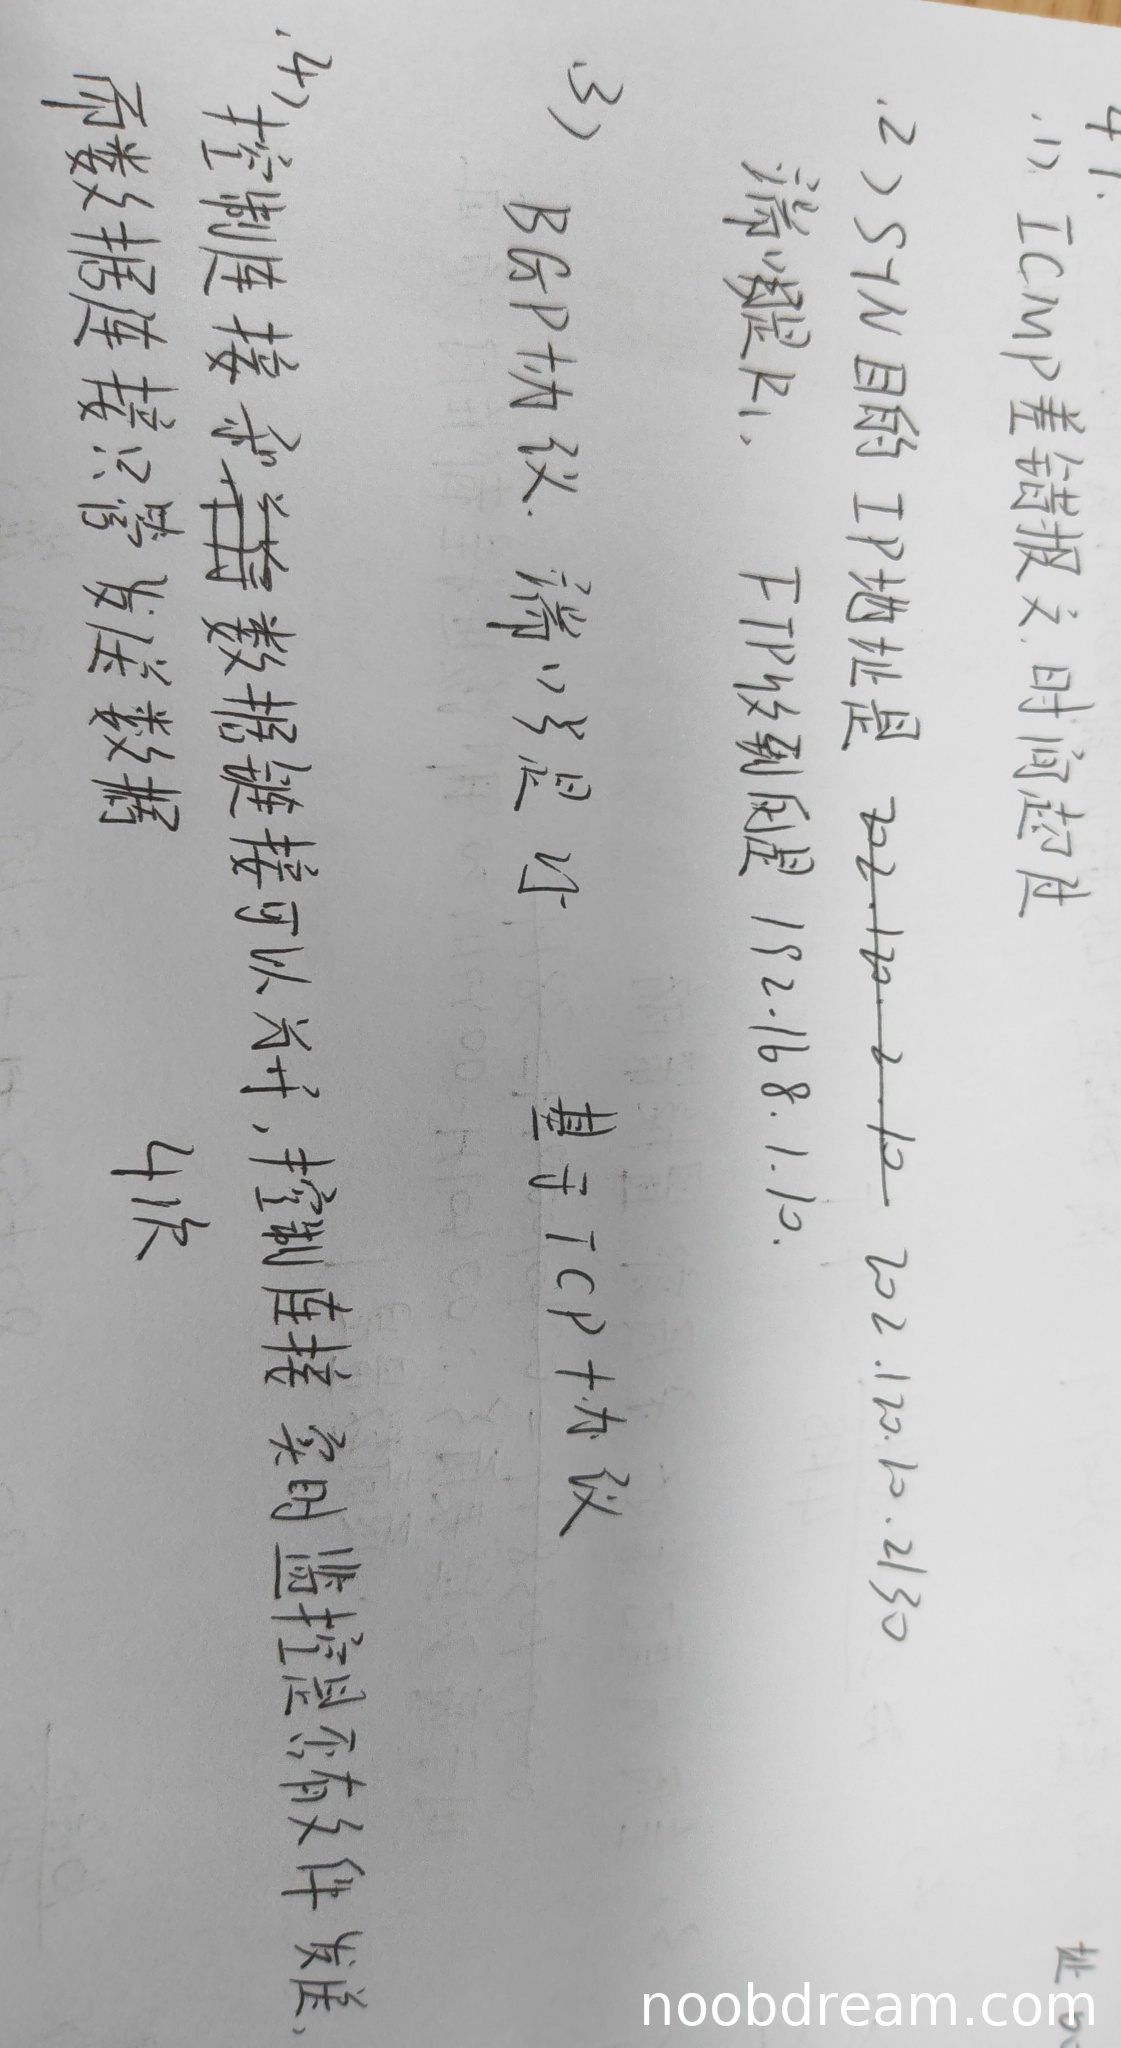 47.
.1) ICMP差错报文.时间超过
.2) SYN目的IP地址是 202.120.2.10 202.120.10.2130
端口是R1. FTP级别是192.168.1.10.
.3) BGP协议. 端口号是 基于TCP协议
.4) 控制连接和 数据链接可以分开,控制连接 实时监控是否有文件发送,
而数据连接只管发送数据 4次
址
noobdream.com